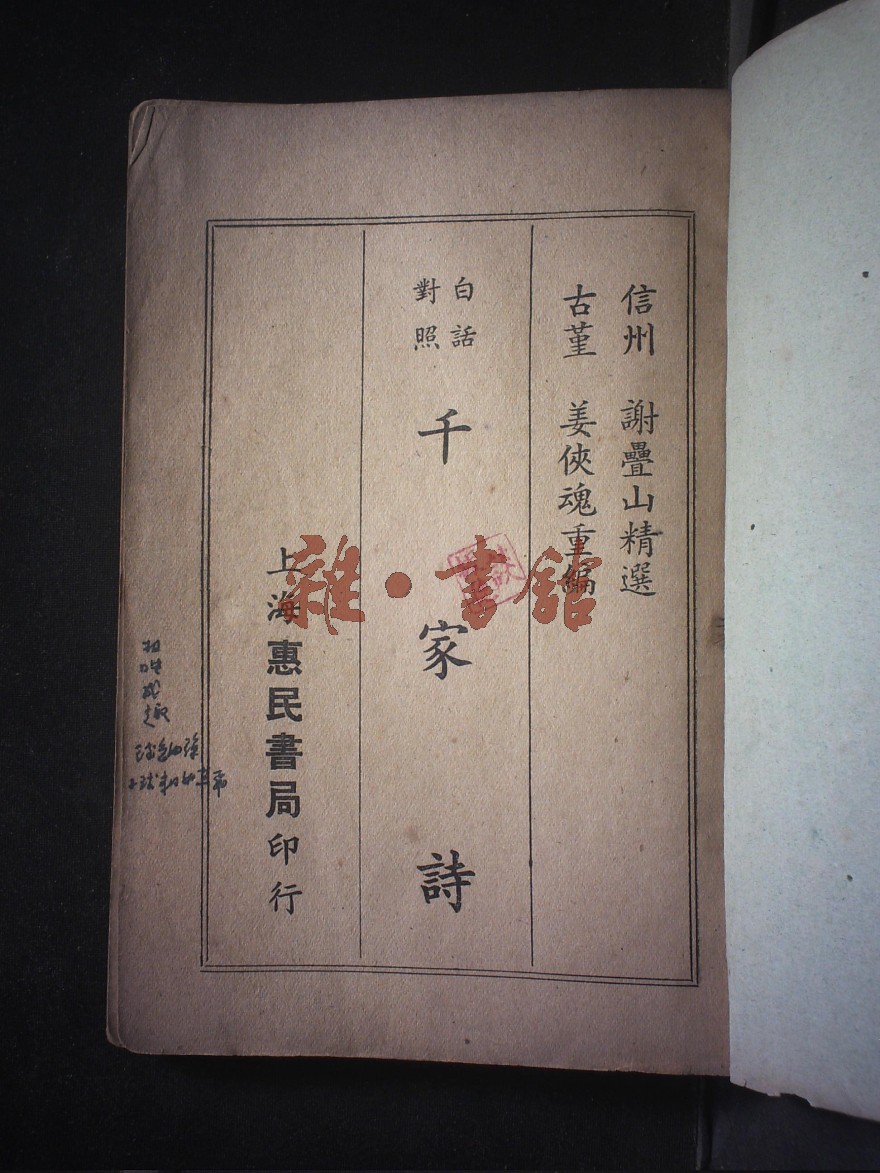 信州　謝疊山精選
古堇　姜俠魂重編
白話
對照
千家詩
上海惠民書局印行
雜·書館